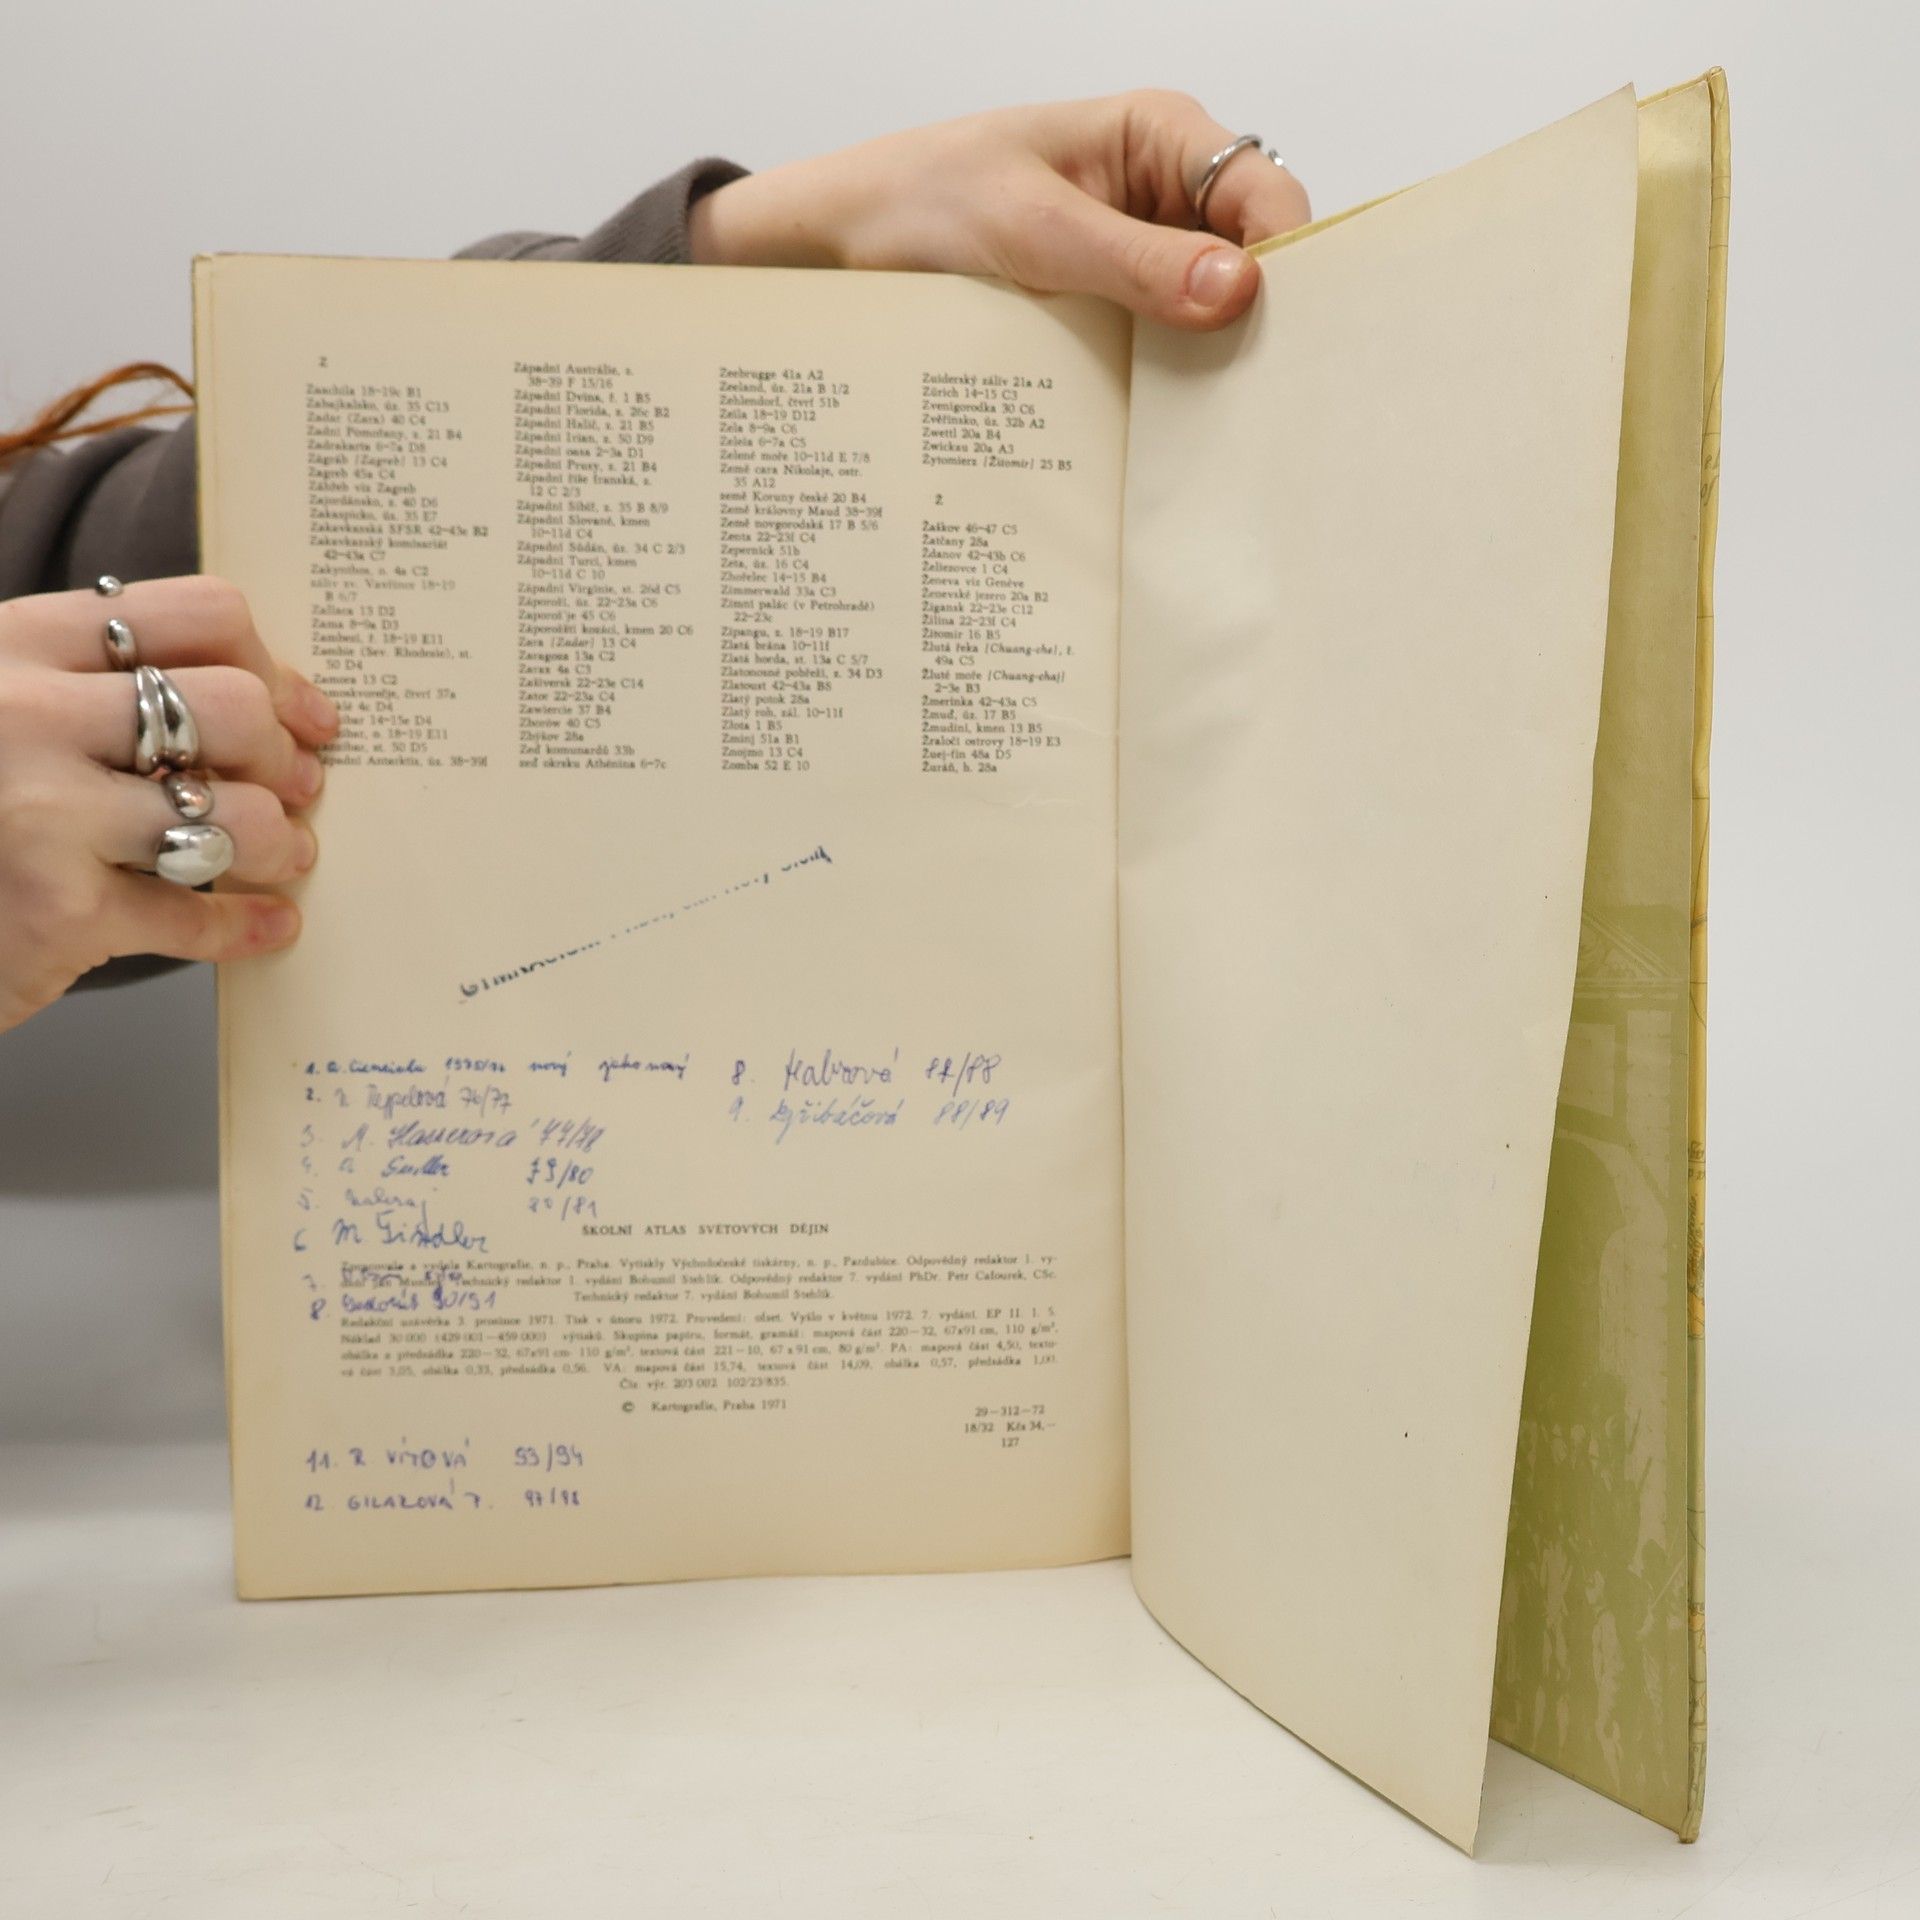 Z
Zaachila 18-19c B1
Zabajkalsko, úz. 35 C13
Zadar (Zara) 40 C4
Zadní Pomořany, z. 21 B4
Zadrakarta 6-7a D8
Zágráb [Zagreb] 13 C4
Zagreb 45a C4
Záhřeb viz Zagreb
Zajordánsko, z. 40 D6
Zakaspicko, úz. 35 E7
Zakavkazská SFSR 42-43e B2
Zakavkazský komisariát
42-43a C7
Zakynthos, o. 4a C2
záliv sv. Vavřince 18-19
B 6/7
Zallaca 13 D2
Zama 8-9a D3
Zambezi, ř. 18-19 E11
Zambie (Sev. Rhodesie), st.
50 D4
Zamora 13 C2
moskvorečje, čtvrť 37a
klé 4c D4
zibar 14-15e D4
zibar, o. 18-19 E11
nzibar, st. 50 D5
ápadní Antarktis, úz. 38-39f
Západní Austrálie, z.
38-39 F 15/16
Západní Dvina, ř. 1 B5
Západní Florida, z. 26c B2
Západní Halič, z. 21 B5
Západní Irian, z. 50 D9
Západní oasa 2-3a D1
Západní Prusy, z. 21 B4
Západní říše franská, z.
12 C 2/3
Západní Sibiř, z. 35 B 8/9
Západní Slované, kmen
10-11d C4
Západní Súdán, úz. 34 C 2/3
Západní Turci, kmen
10-11d C 10
Západní Virginie, st. 26d C5
Záporoží, úz. 22-23a C6
Zaporož'je 45 C6
Záporožští kozáci, kmen 20 C6
Zara [Zadar] 13 C4
Zaragoza 13a C2
Zarax 4a C3
Zašiversk 22-23e C14
Zator 22-23a C4
Zawiercie 37 B4
Zborów 40 C5
Zbýkov 28a
Zeď komunardů 33b
zeď okrsku Athénina 6-7c
Zeebrugge 41a A2
Zeeland, úz. 21a B 1/2
Zehlendorf, čtvrť 51b
Zeila 18-19 D12
Zela 8-9a C6
Zeleia 6-7a C5
Zelené moře 10-11d E 7/8
Země cara Nikolaje, ostr.
35 A12
země Koruny české 20 B4
Země královny Maud 38-39f
Země novgorodská 17 B 5/6
Zenta 22-23f C4
Zepernick 51b
Zeta, úz. 16 C4
Zhořelec 14-15 B4
Zimmerwald 33a C3
Zimní palác (v Petrohradě)
22-23c
Zipangu, z. 18-19 B17
Zlatá brána 10-11f
Zlatá horda, st. 13a C 5/7
Zlatonosné pobřeží, z. 34 D3
Zlatoust 42-43a B8
Zlatý potok 28a
Zlatý roh, zál. 10-11f
Złota 1 B5
Zminj 51a B1
Znojmo 13 C4
Zomba 52 E 10
Zuiderský záliv 21a A2
Zürich 14-15 C3
Zvenigorodka 30 C6
Zvěřinsko, úz. 32b A2
Zwettl 20a B4
Zwickau 20a A3
Żytomierz [Žitomir] 25 B5
Ž
Žaškov 46-47 C5
Žatčany 28a
Ždanov 42-43b C6
Želiezovce 1 C4
Ženeva viz Genève
Ženevské jezero 20a B2
Žigansk 22-23e C12
Žilina 22-23f C4
Žitomir 16 B5
Žlutá řeka [Chuang-che], ř.
49a C5
Žluté moře [Chuang-chaj]
2-3e B3
Žmerinka 42-43a C5
Žmuď, úz. 17 B5
Žmudíni, kmen 13 B5
Žraločí ostrovy 18-19 E3
Žuej-ťin 48a D5
Žuráň, h. 28a
1. 1975/76 nový jako nový
2. 76/77
3. M. 77/78
4. 79/80
5. 80/81
6 M. Šindler
7.
8. 90/91
8. 87/88
9. 88/89
ŠKOLNÍ ATLAS SVĚTOVÝCH DĚJIN
Zpracovala a vydala Kartografie, n. p., Praha. Vytiskly Východočeské tiskárny, n. p., Pardubice. Odpovědný redaktor 1. vy-
dání Jan Technický redaktor 1. vydání Bohumil Stehlík. Odpovědný redaktor 7. vydání PhDr. Petr Cafourek, CSc.
Technický redaktor 7. vydání Bohumil Stehlík.
Redakční uzávěrka 3. prosince 1971. Tisk v únoru 1972. Provedení: ofset. Vyšlo v květnu 1972. 7. vydání. EP II. 1. 5.
Náklad 30 000 (429 001—459 000) výtisků. Skupina papíru, formát, gramáž: mapová část 220—32, 67x91 cm, 110 g/m²,
obálka a předsádka 220—32, 67x91 cm 110 g/m², textová část 221—10, 67 x 91 cm, 80 g/m². PA: mapová část 4,50, texto-
vá část 3,05, obálka 0,33, předsádka 0,56. VA: mapová část 15,74, textová část 14,09, obálka 0,57, předsádka 1,00.
Čís. výr. 203 002 102/23/835.
© Kartografie, Praha 1971
29—312—72
18/32 Kčs 34,—
127
11. R. VÍTOVÁ 93/94
12. GILAROVÁ 97/98